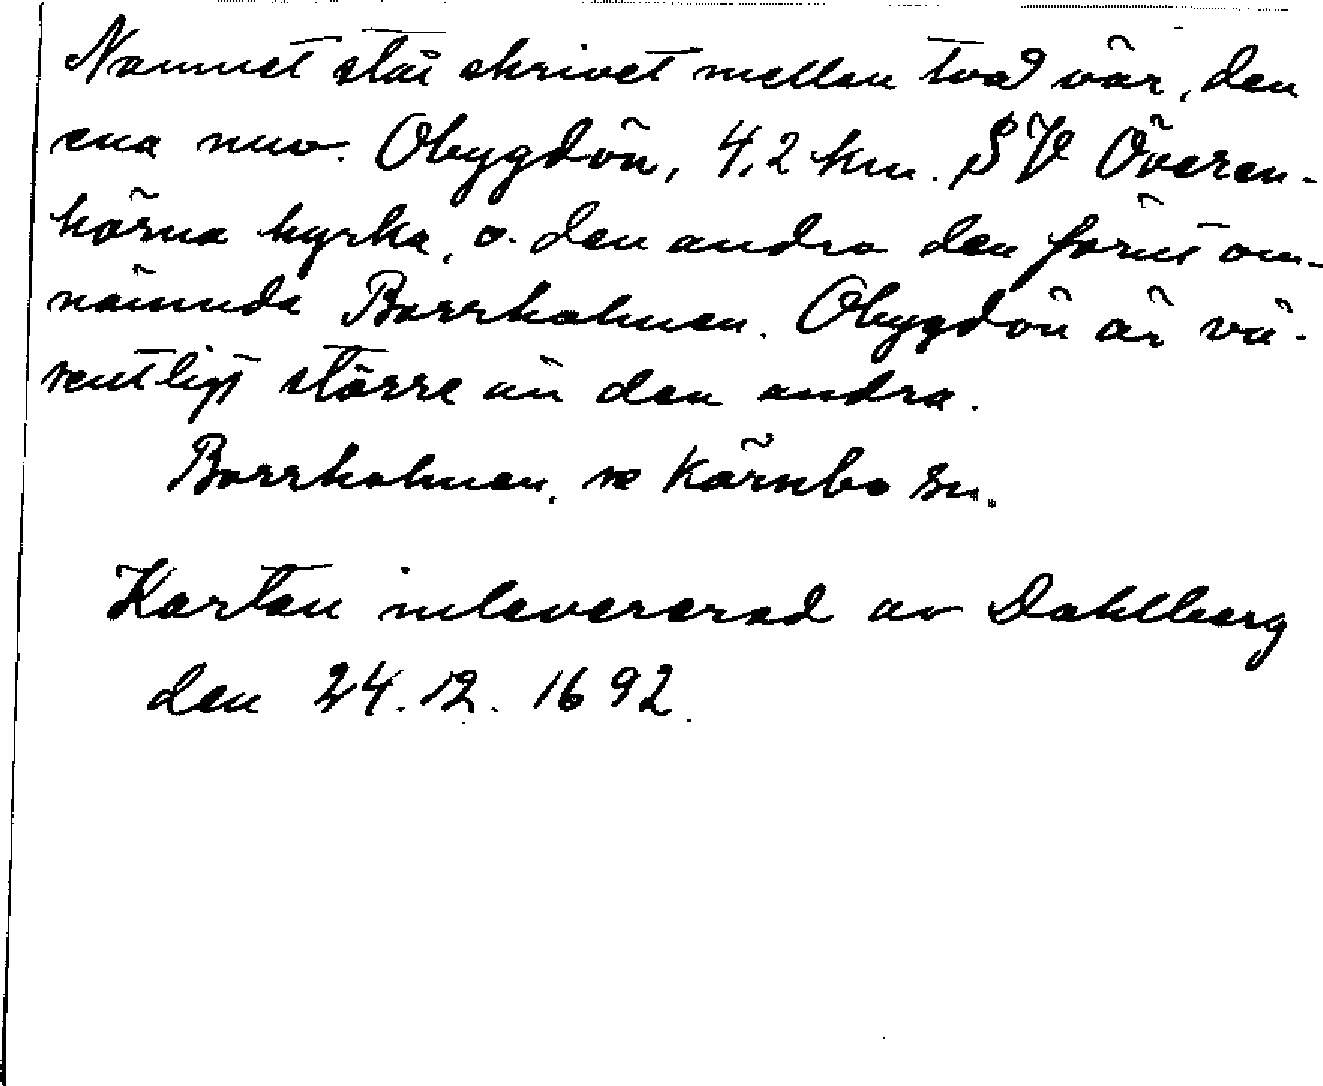 Namnet står skrivet mellan två öar, den
ena nuv. Obygdön, 4,2 km. SV Överen-
hörna kyrka, o. den andra den förut om-
nämnda Borrholmen. Obygdön är vä-
sentligt större än den andra.
Borrholmen, se Kärnbo sn.
Kartan inlevererad av Dahlberg
den 24.12. 1692.